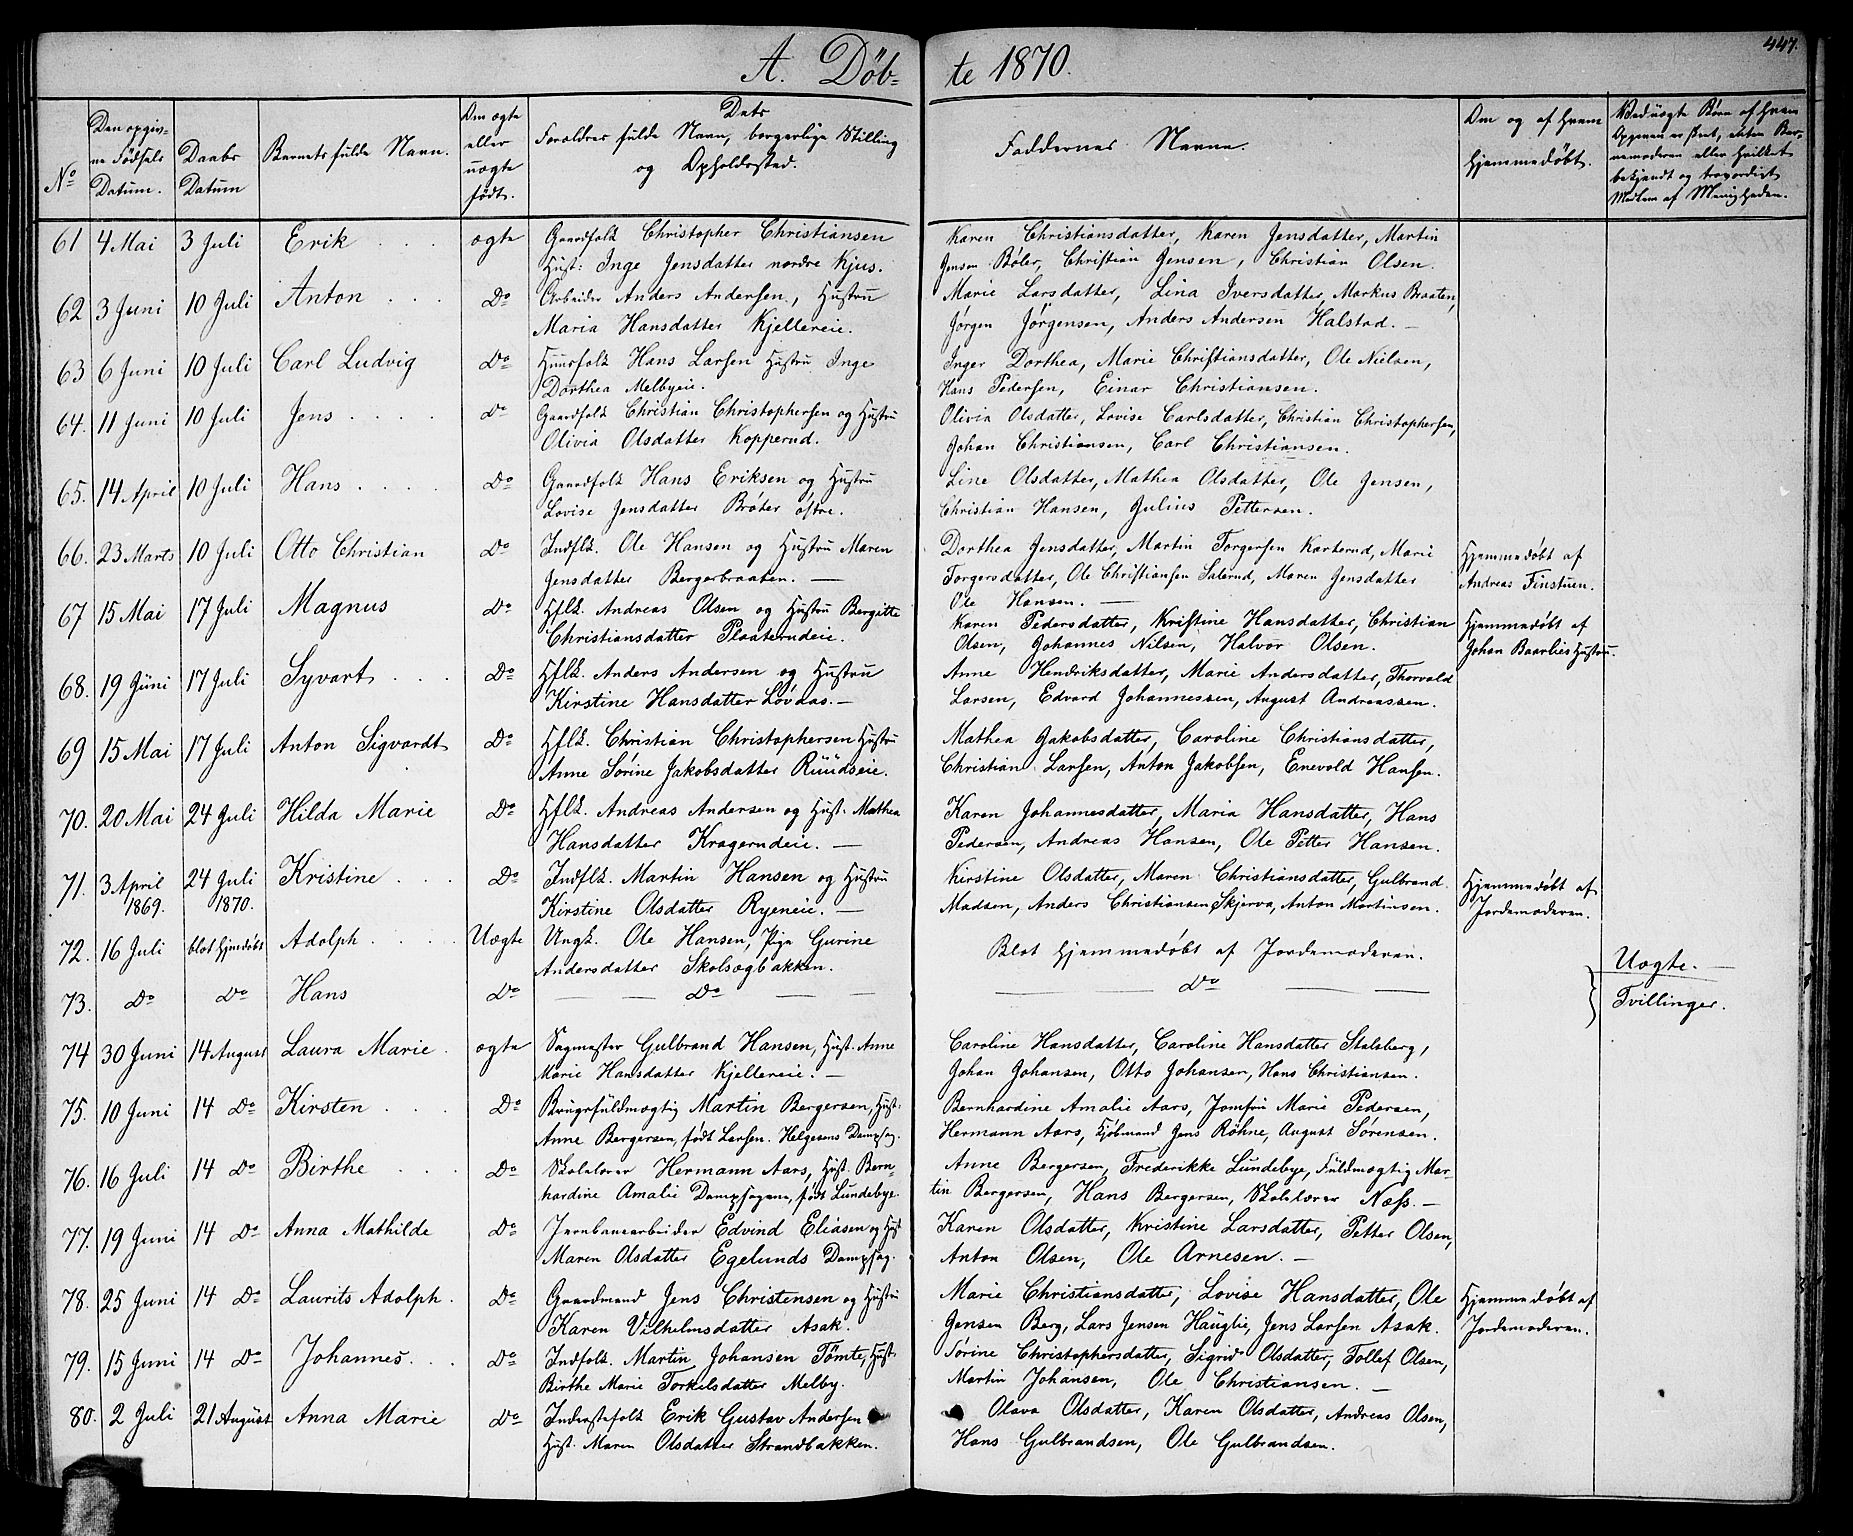 447.
A. Døb- te 1870.
No
Den opgivne Fødsels Datum.
Daabs Datum
Barnets fulde Navn.
Om ægte eller uægte født.
Dets Forældres fulde Navn, borgerlige Stilling og Opholdssted.
Faddernes Navne.
Om og af Hvem hjemmedøbt.
Ved uægte Børn af Hvem Opgaven er skeet, enten Barnemoderen eller hvilket bekjendt og troværdigt Medlem af Menigheden.
61 4 Mai 3 Juli Erik ægte Gaardfolk Christopher Christiansen Karen Christiansdatter, Karen Jensdatter, Martin
Hust: Inge Jensdatter nordre Kjus. Jensen Bøler, Christian Jensen, Christian Olsen.
62 3 Juni 10 Juli Anton Do Arbeider Anders Andersen, Hustru Marie Larsdatter, Lina Iversdatter, Markus Braaten,
Maria Hansdatter Kjellereie. Jørgen Jørgensen, Anders Andersen Halstad. —
63 6 Juni 10 Juli Carl Ludvig Do Huusfolk Hans Larsen Hustru Inge Inger Dorthea, Marie Christiansdatter, Ole Nielsen,
Dorthea Melbyeie. Hans Pedersen, Einar Christiansen.
64. 11 Juni 10 Juli Jens Do Gaardfolk Christian Christophersen og Hustru Olivia Olsdatter, Lovise Carlsdatter, Christian Christophersen,
Olivia Olsdatter Kopperud. Johan Christiansen, Carl Christiansen.
65. 14 April 10 Juli Hans Do Gaardfolk Hans Eriksen og Hustru Line Olsdatter, Mathea Olsdatter, Ole Jensen,
Lovise Jensdatter Brøter østre. Christian Hansen, Julius Pettersen.
66. 23 Marts 10 Juli Otto Christian Do Indflk. Ole Hansen og Hustru Maren Dorthea Jensdatter, Martin Torgersen Karterud, Marie Hjemmedøbt af
Jensdatter Bergerbraaten. — Torgersdatter, Ole Christiansen Salerud, Maren Jensdatter Andreas Finstuen.
Ole Hansen. —
67 15 Mai 17 Juli Magnus Do Hflk. Andreas Olsen og Hustru Bergitte Karen Pedersdatter, Kristine Hansdatter, Christian Hjemmedøbt af
Christiansdatter Plaaterudeie. Olsen, Johannes Nilsen, Halvor Olsen. Johan Baarlies Hustru.
68. 19 Juni 17 Juli Syvart Do Hflk. Anders Andersen og Hustru Anne Hendriksdatter, Marie Andersdatter, Thorvald
Kirstine Hansdatter Løvdas. — Larsen, Edvard Johannessen, August Andreassen.
69 15 Mai 17 Juli Anton Sigvardt Do Hflk. Christian Christophersen Hustru Mathea Jakobsdatter, Caroline Christiansdatter,
Anne Sørine Jakobsdatter Ruudseie. Christian Larsen, Anton Jakobsen, Enevold Hansen.
70. 20 Mai 24 Juli Hilda Marie Do Hflk. Andreas Andersen og Hust. Mathea Karen Johannesdatter, Maria Hansdatter, Hans
Hansdatter Kragerudeie. — Pedersen, Andreas Hansen, Ole Petter Hansen.
71. 3 April 24 Juli Kristine Do Indflk. Martin Hansen og Hustru Kirstine Olsdatter, Maren Christiansdatter, Gulbrand Hjemmedøbt af
1869. 1870. Kirstine Olsdatter Ryeneie. — Madsen, Anders Christiansen Skjerva, Anton Martinsen. Jordemoderen.
72. 16 Juli blot hjmdøbt Adolph Uægte Ungk. Ole Hansen, Pige Gurine Blot hjemmedøbt af Jordemoderen.
Andersdatter Skolsegbakken. Uægte. —
73. Do Do Hans Do — Do — — Do — Tvillinger.
74 30 Juni 14 August Laura Marie ægte Sagmester Gulbrand Hansen, Hust. Anne Caroline Hansdatter, Caroline Hansdatter Stalsberg,
Marie Hansdatter Kjellereie. — Johan Johansen, Otto Johansen, Hans Christiansen.
75. 10 Juni 14 Do Kirsten Do Brugsfuldmægtig Martin Bergersen, Hust. Bernhardine Amalie Aars, Jomfru Marie Pedersen,
Anne Bergersen, født Larsen. Helgesens Dampsag. Hermann Aars, Kjøbmand Jens Röhne, August Sørensen.
76. 16 Juli 14 Do Birthe Do Skolelærer Hermann Aars, Hust. Bern- Anne Bergersen, Frederikke Lundebye, Fuldmægtig Mar-
hardine Amalie Dampsagene, født Lundebye. tin Bergersen, Hans Bergersen, Skolelærer Næss. —
77. 19 Juni 14 Do Anna Mathilde Do Jernbanearbeider Edvind Eliasen og Hust Karen Olsdatter, Kristine Larsdatter, Petter Olsen,
Maren Olsdatter Egelunds Dampsag. Anton Olsen, Ole Arnesen. —
78. 25 Juni 14 Do Laurits Adolph. Do Gaardmand Jens Christensen og Hustru Marie Christiansdatter, Lovise Hansdatter, Ole Hjemmedøbt af
Karen Vilhelmsdatter Asak. Jensen Berg, Lars Jensen Häuglie, Jens Larsen Asak. Jordemoderen.
79. 15 Juni 14 Do Johannes Do Indfolk. Martin Johansen Tömte, Hust. Sørine Christophersdatter, Sigrid Olsdatter, Tollef Olsen,
Birthe Marie Torkelsdatter Melby. Martin Johansen, Ole Christiansen. —
80. 2 Juli 21 August Anna Marie Do Inderstefolk Erik Gustav Andersen Olava Olsdatter, Karen Olsdatter, Andreas Olsen,
Hust. Maren Olsdatter Strandbakken. Hans Gulbrandsen, Ole Gulbrandsen.